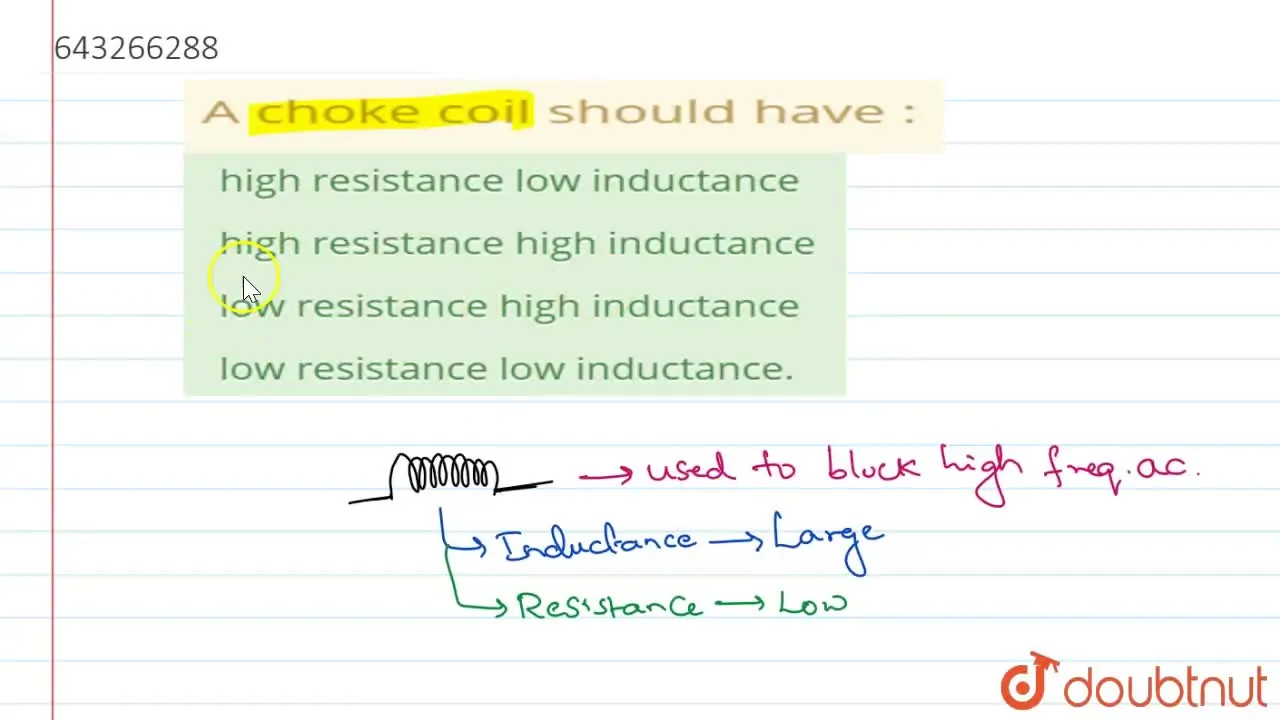 643266288
A choke coil should have :
high resistance low inductance
high resistance high inductance
low resistance high inductance
low resistance low inductance.
→ used to block high freq. ac.
→ Inductance → Large
→ Resistance → Low
doubtnut